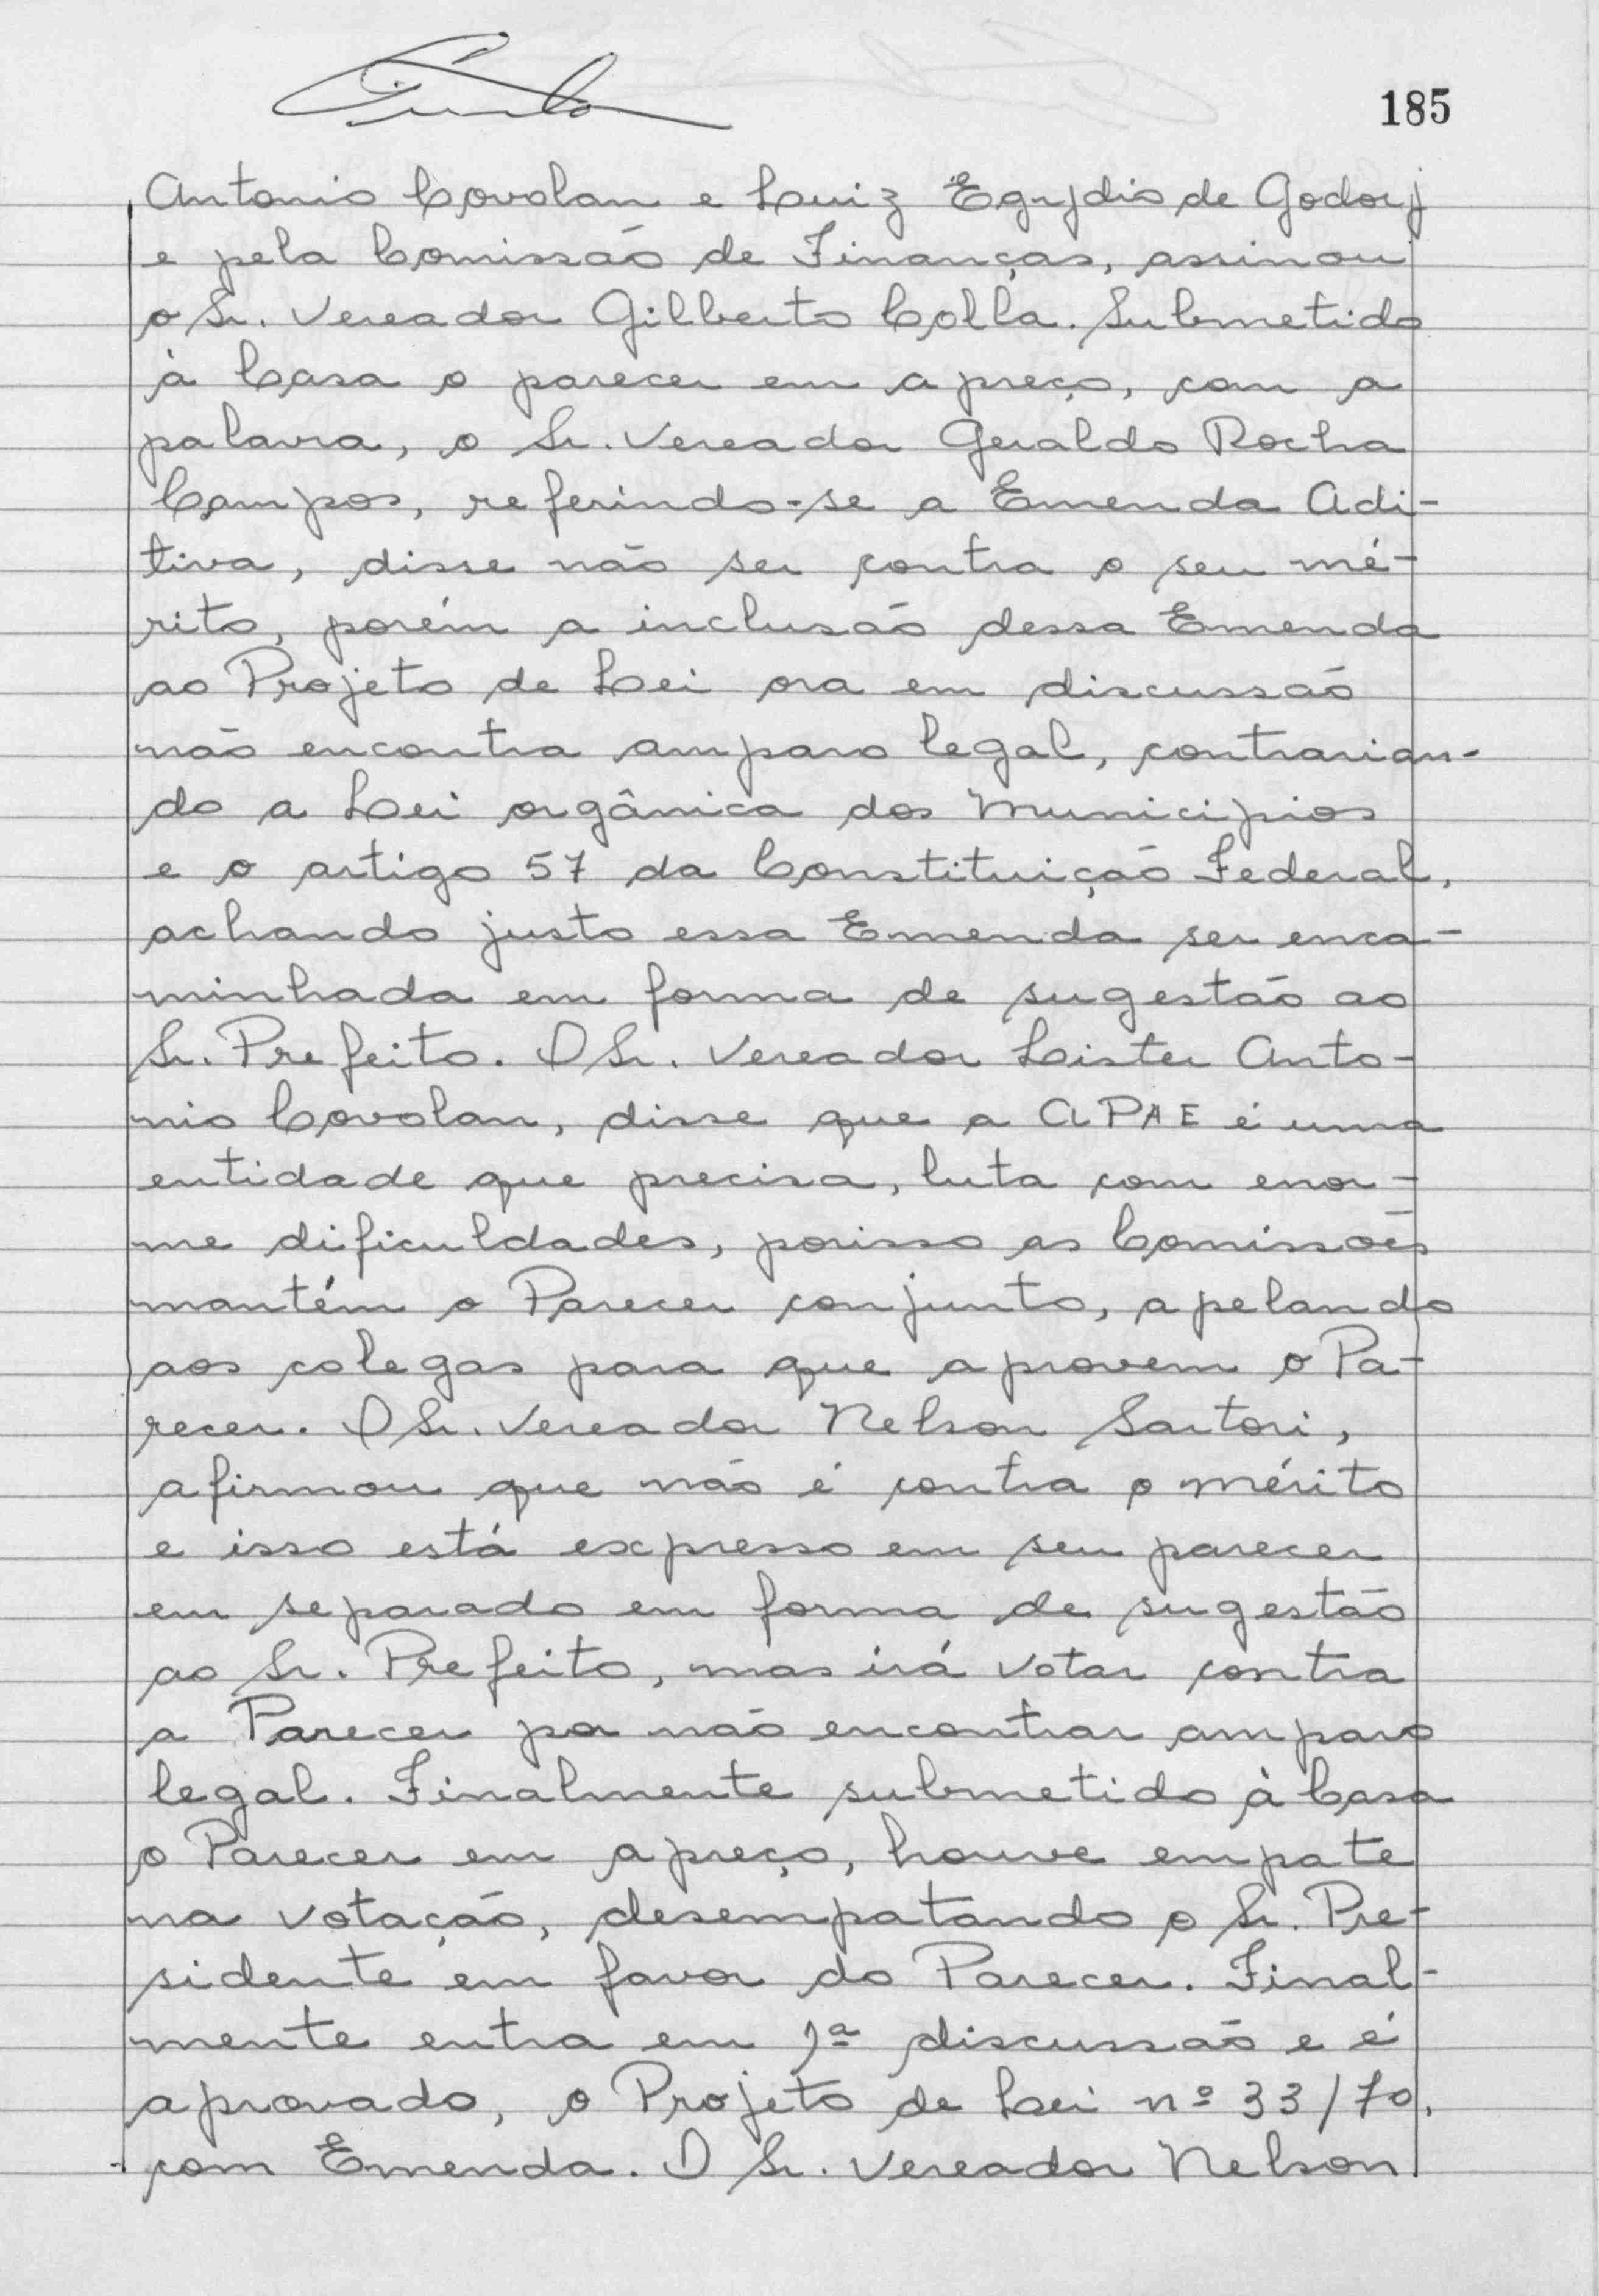 185
Antonio Covolan e Luiz Egydio de Godoy
e pela Comissão de Finanças, assinou
o Sr. Vereador Gilberto Colla. Submetido
à Casa o parecer em apreço, com a
palavra, o Sr. Vereador Geraldo Rocha
Campos, referindo-se a Emenda Adi-
tiva, disse não ser contra o seu mé-
rito, porém a inclusão dessa Emenda
ao Projeto de Lei ora em discussão
não encontra amparo legal, contrarian-
do a Lei orgânica dos Municipios
e o artigo 57 da Constituição Federal,
achando justo essa Emenda ser enca-
minhada em forma de sugestão ao
Sr. Prefeito. O Sr. Vereador Lister Anto-
nio Covolan, disse que a APAE é uma
entidade que precisa, luta com enor-
me dificuldades, porisso as Comissões
mantém o Parecer conjunto, apelando
aos colegas para que aprovem o Pa-
recer. O Sr. Vereador Nelson Sartori,
afirmou que não é contra o mérito
e isso está expresso em seu parecer
em separado em forma de sugestão
ao Sr. Prefeito, mas irá votar contra
a Parecer por não encontrar amparo
legal. Finalmente submetido à Casa
o Parecer em apreço, houve empate
na votação, desempatando o Sr. Pre-
sidente em favor do Parecer. Final-
mente entra em 1ª discussão e é
aprovado, o Projeto de Lei nº 33/70,
com Emenda. O Sr. Vereador Nelson